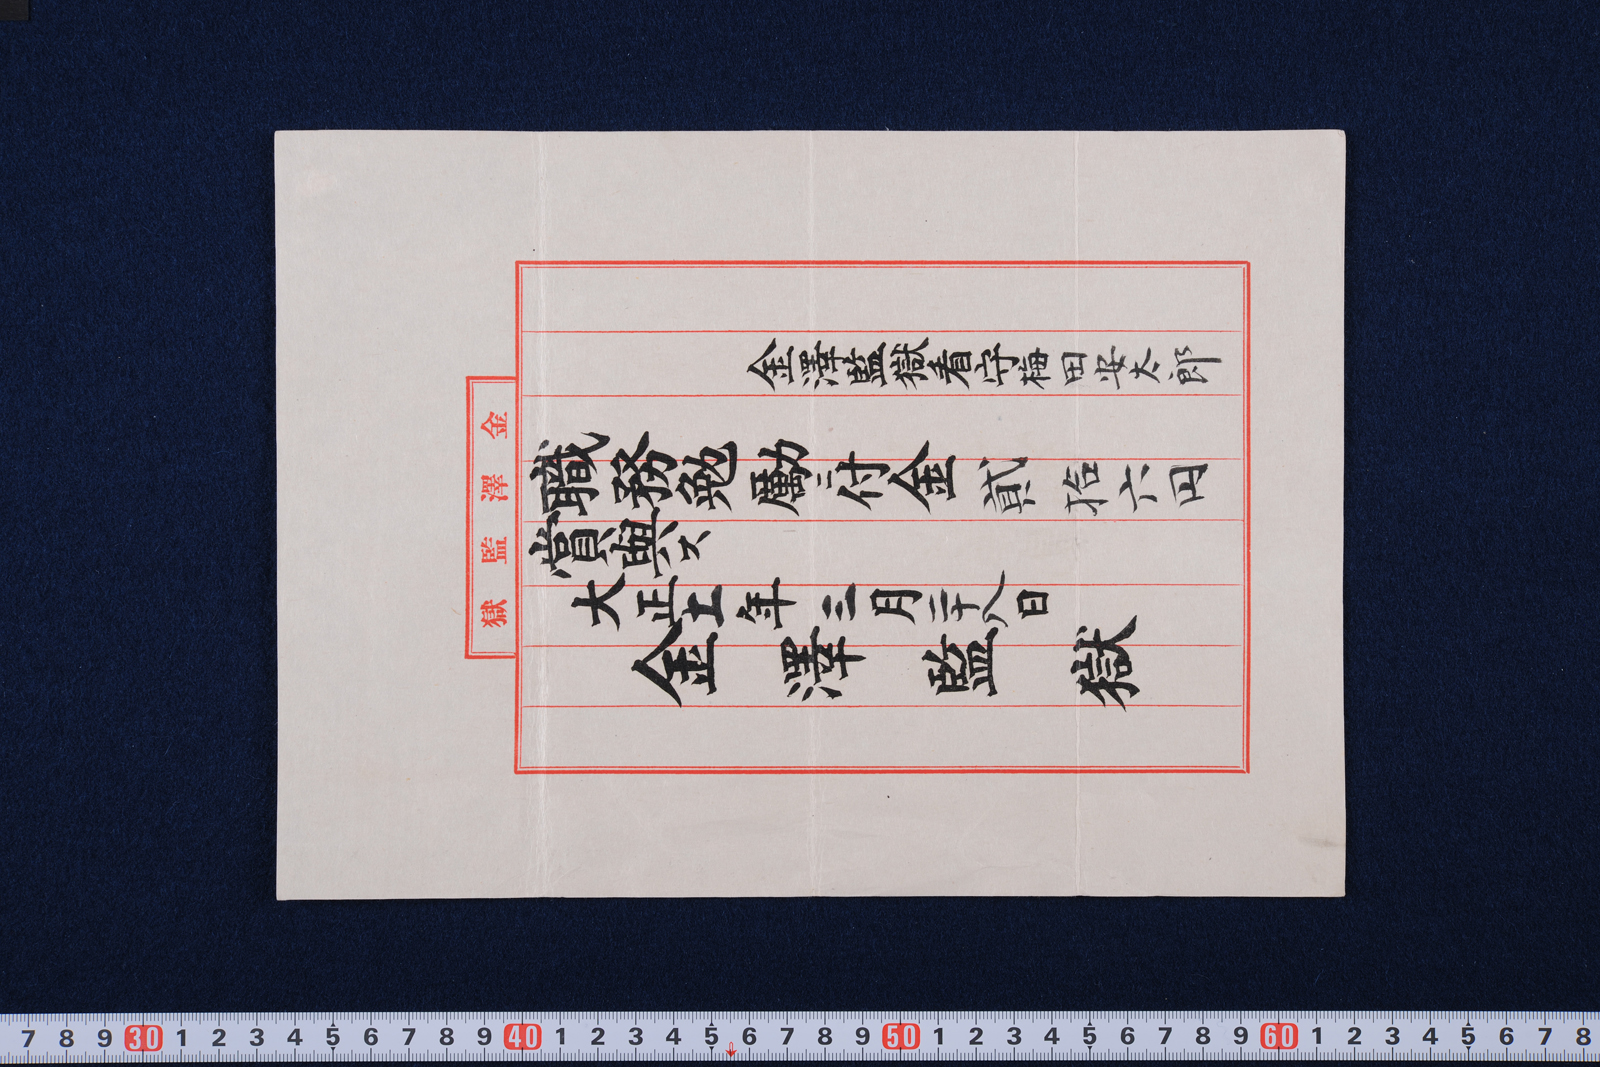 金澤監獄看守梅田安太郎
職務勉勵ニ付金貳拾六円
賞與ス
大正十一年三月二十八日
金澤監獄
金澤監獄
7 8 9 30 1 2 3 4 5 6 7 8 9 40 1 2 3 4 5 6 7 8 9 50 1 2 3 4 5 6 7 8 9 60 1 2 3 4 5 6 7 8